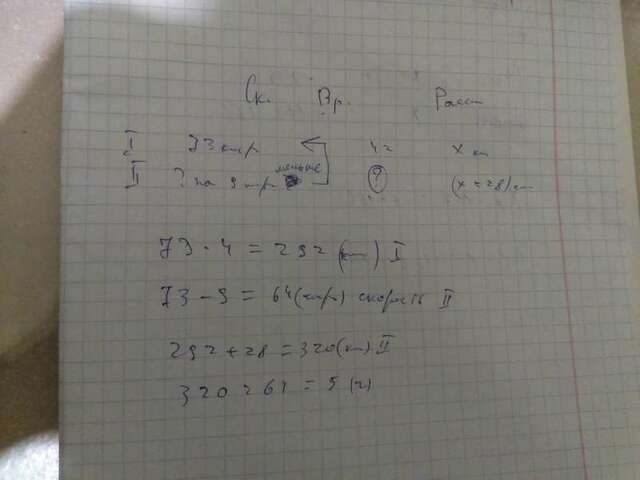 Ск. Вр. Расст
I 73 км/ч 4ч x км
II ? на 9 км/ч меньше ? (x+28) км
73 · 4 = 292 (км) I
73 - 9 = 64 (км/ч) скорость II
292 + 28 = 320 (км) II
320 : 64 = 5 (ч)